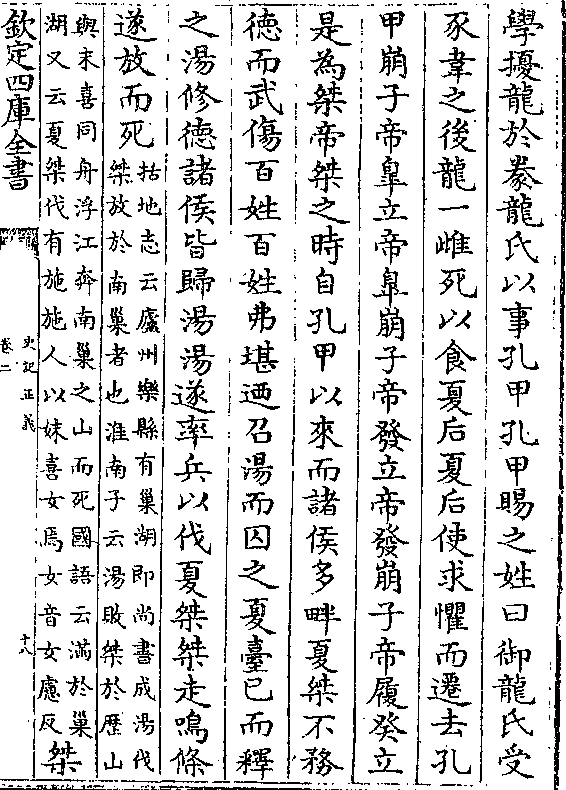 學擾龍於豢龍氏以事孔甲孔甲賜之姓曰御龍氏受
豕韋之後龍一雌死以食夏后夏后使求懼而遷去孔
甲崩子帝臯立帝臯崩子帝發立帝發崩子帝履癸立
是為桀帝桀之時自孔甲以來而諸侯多畔夏桀不務
德而武傷百姓百姓弗堪迺召湯而囚之夏臺已而釋
之湯修德諸侯皆歸湯湯遂率兵以伐夏桀桀走鳴條
遂放而死
括地志云廬州樂縣有巢湖即尚書成湯伐
桀放於南巢者也淮南子云湯敗桀於歴山
與末喜同舟浮江奔南巢之山而死國語云滿於巢
湖又云夏桀伐有施施人以妹喜女焉女音女慮反
桀
欽定四庫全書
史記正義
卷二
十八